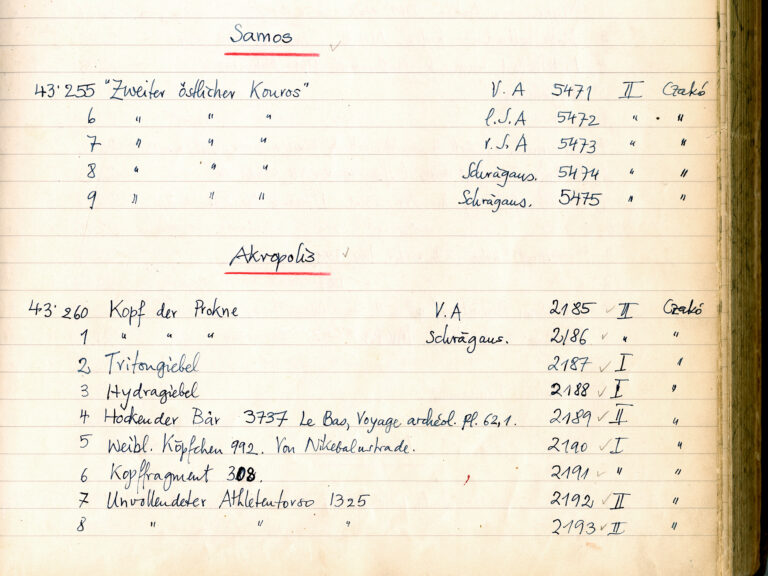 Samos ✓
43·255 "Zweiter östlicher Kouros" V.A 5471 II Czakó
6 " " " l.S.A 5472 " "
7 " " " r.S.A 5473 " "
8 " " " Schrägans. 5474 " "
9 " " " Schrägans. 5475 " "
Akropolis ✓
43·260 Kopf der Prokne V.A 2185 ✓ II Czakó
1 " " " Schrägans. 2186 ✓ " "
2 Tritongiebel 2187 ✓ I "
3 Hydragiebel 2188 ✓ I "
4 Hockender Bär 3737 Le Bas, Voyage archéol. Pl. 62,1. 2189 ✓ II "
5 Weibl. Köpfchen 992. Von Nikebalustrade. 2190 ✓ I "
6 Kopffragment 308. 2191 ✓ " "
7 Unvollendeter Athletentorso 1325 2192 ✓ II "
8 " " " 2193 ✓ II "